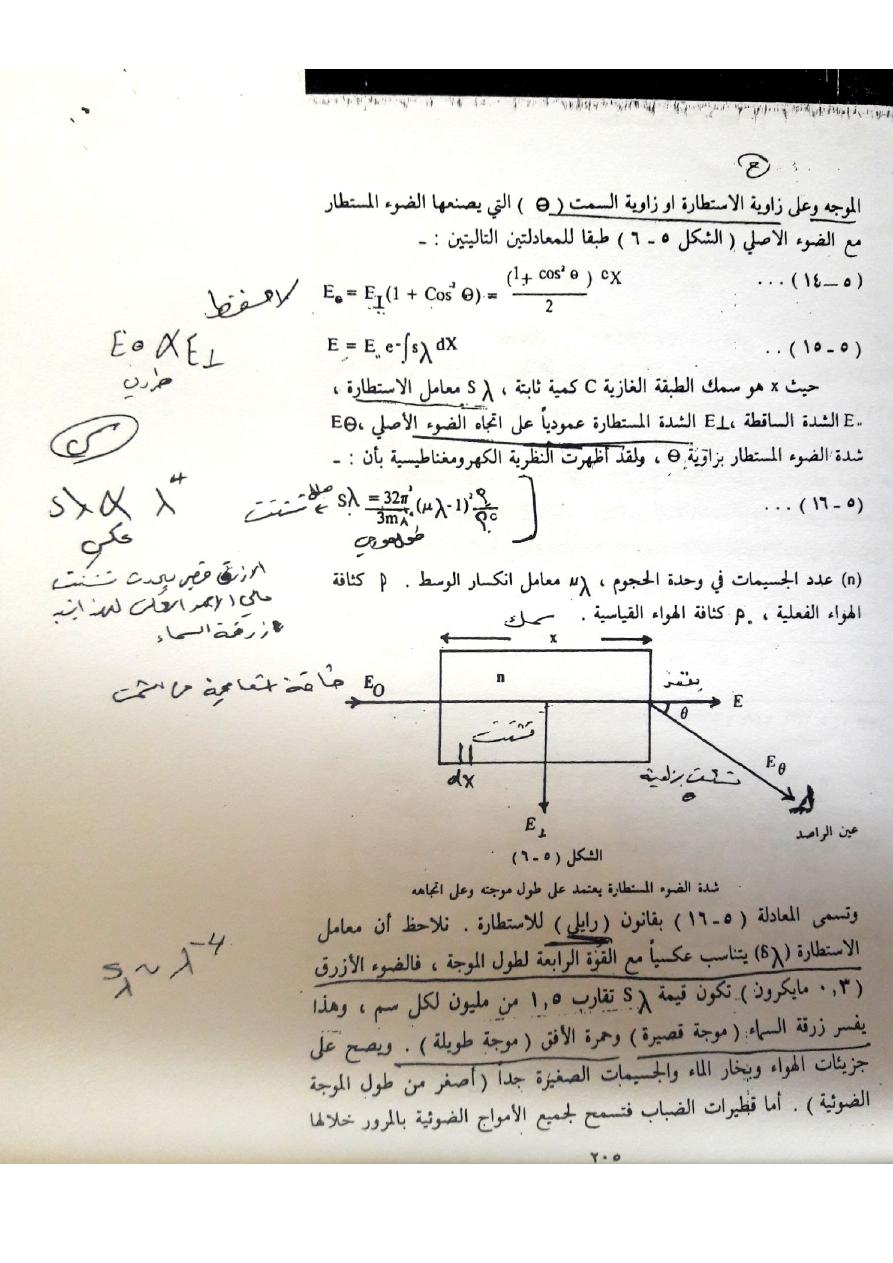 ح
الموجه وعلى زاوية الاستطارة او زاوية السمت ( θ ) التي يصنعها الضوء المستطار
مع الضوء الاصلي ( الشكل ٥ ـ ٦ ) طبقا للمعادلتين التاليتين : ـ
E₀ = E⊥(1 + Cos² Θ) = (1+ cos² θ) cX / 2 ... (٥ – ١٤)
E = E.. e-∫sλ dX .. (٥-١٥)
حيث x هو سمك الطبقة الغازية C كمية ثابتة ، Sλ معامل الاستطارة ،
E.. الشدة الساقطة ، E⊥ الشدة المستطارة عمودياً على اتجاه الضوء الأصلي ، EΘ
شدة الضوء المستطار بزاوية Θ ، ولقد أظهرت النظرية الكهرومغناطيسية بأن : ـ
Sλ = 32π³/3mλ⁴ (μλ-1)² ρ/ρc ... (٥-١٦)
(n) عدد الجسيمات في وحدة الحجوم ، μλ معامل انكسار الوسط . ρ كثافة
الهواء الفعلية ، ρ. كثافة الهواء القياسية .
لاحظ فقط
Eθ α E⊥
طردي
Sλ α λ⁴
عكسي
تشتت
طول موجي
زرقة السماء
سمك
x
E₀
n
ينفذ
E
θ
تشتت
dx
تشتت بزاوية
θ
Eθ
E⊥
عين الراصد
الشكل (٥-٦)
شدة الضوء المستطارة يعتمد على طول موجته وعلى اتجاهه
وتسمى المعادلة (٥-١٦) بقانون (رايلي) للاستطارة . نلاحظ أن معامل
الاستطارة (Sλ) يتناسب عكسياً مع القوة الرابعة لطول الموجة ، فالضوء الأزرق
(٠,٣ مايكرون) تكون قيمة Sλ تقارب ١,٥ من مليون لكل سم ، وهذا
يفسر زرقة السماء (موجة قصيرة) وحمرة الأفق (موجة طويلة) . ويصح على
جزيئات الهواء وبخار الماء والجسيمات الصغيرة جداً (أصغر من طول الموجة
الضوئية) . أما قطيرات الضباب فتسمح لجميع الأمواج الضوئية بالمرور خلالها
Sλ ~ λ⁻⁴
٢٠٥